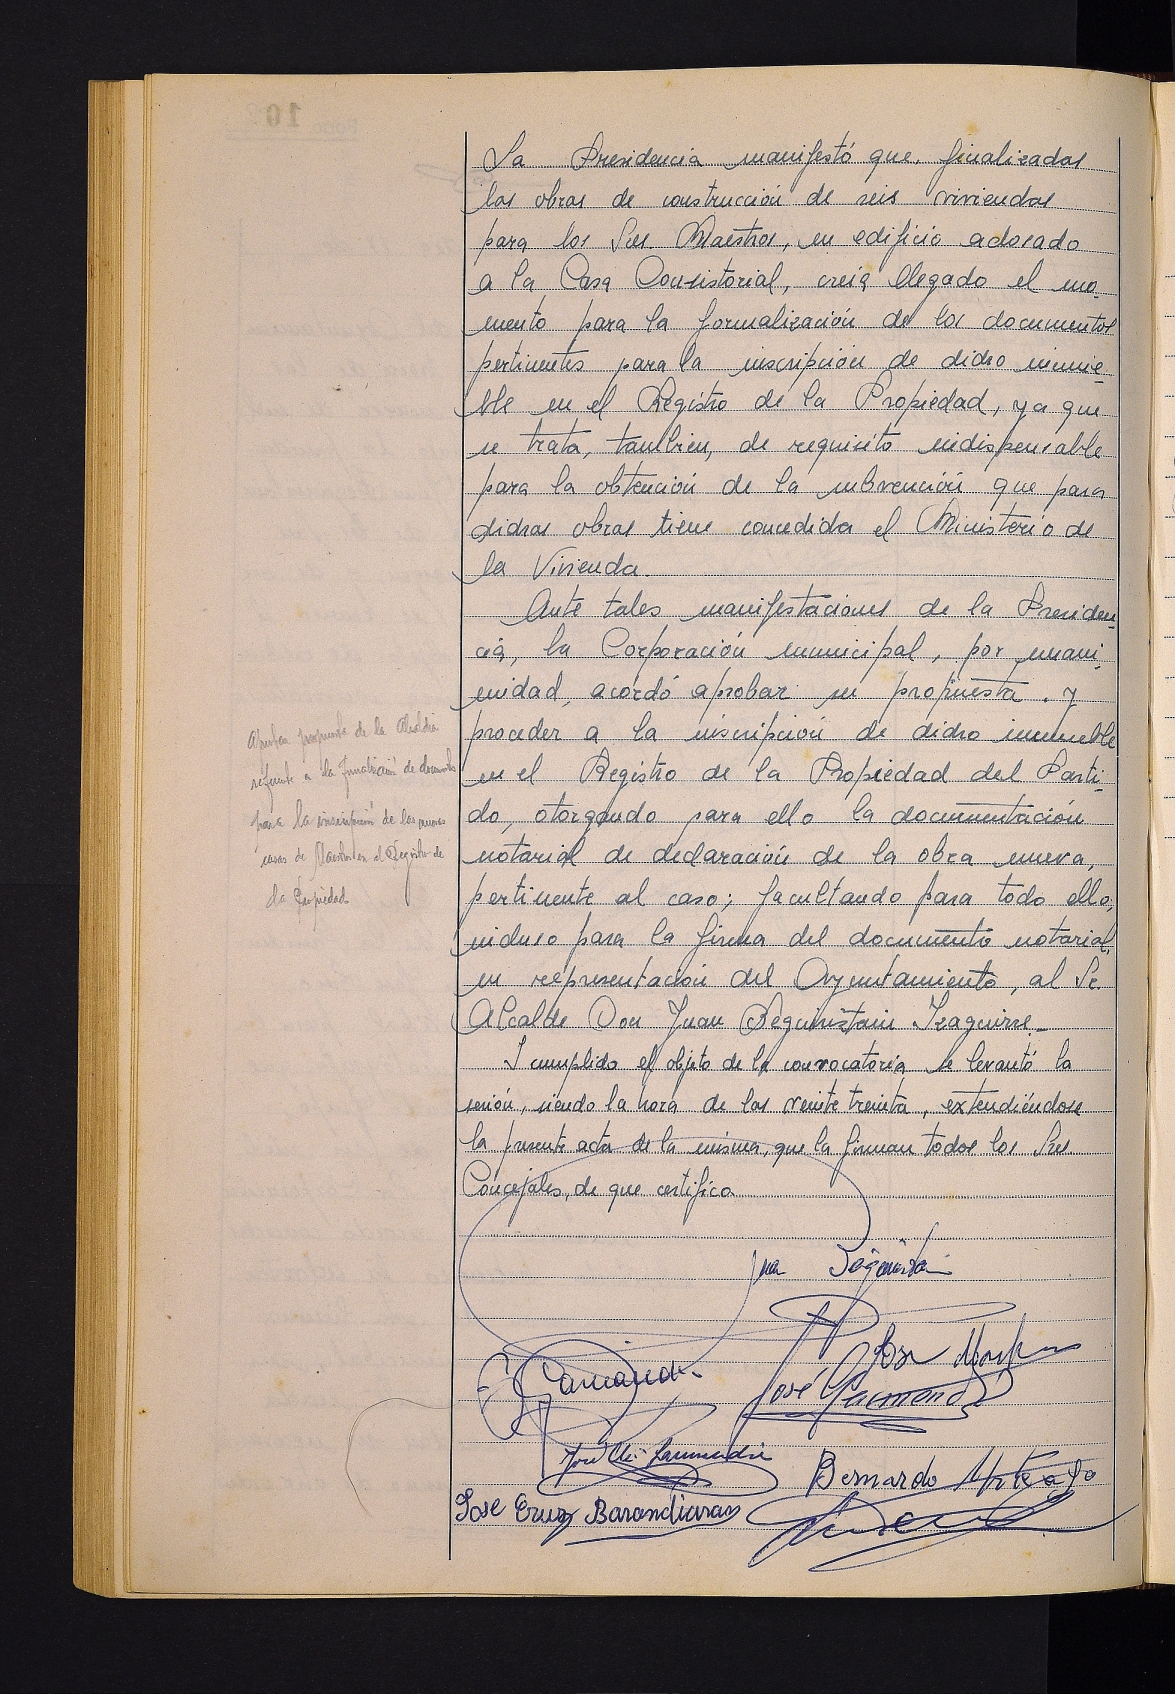 La Presidencia manifestó que, finalizadas
las obras de construcción de seis viviendas
para los Sres. Maestros, en edificio adosado
a la Casa Consistorial, creía llegado el mo-
mento para la formalización de los documentos
pertinentes para la inscripción de dicho inmue-
ble en el Registro de la Propiedad, ya que
se trata, también, de requisito indispensable
para la obtención de la subvención que para
dichas obras tiene concedida el Ministerio de
la Vivienda.
Ante tales manifestaciones de la Presiden-
cia, la Corporación municipal, por unani-
midad, acordó aprobar su propuesta. y
proceder a la inscripción de dicho inmueble
en el Registro de la Propiedad del Parti-
do, otorgando para ello la documentación
notarial de declaración de la obra nueva,
pertinente al caso; facultando para todo ello,
incluso para la firma del documento notarial,
en representación del Ayuntamiento, al Sr.
Alcalde Don Juan Beguiristain Izaguirre.-
Y cumplido el objeto de la convocatoria se levantó la
sesión, siendo la hora de las veinte treinta, extendiéndose
la presente acta de la misma, que la firman todos los Sres.
Concejales, de que certifico
Aprueban propuesta de la Alcaldía
referente a la formalización de documentos
para la inscripción de las nuevas
casas de Maestros en el Registro de
la Propiedad
Juan Beguiristain
José
Garmendia
José Garmendia
José Mª Garmendia
Bernardo Urteaga
Jose Cruz Barandiaran